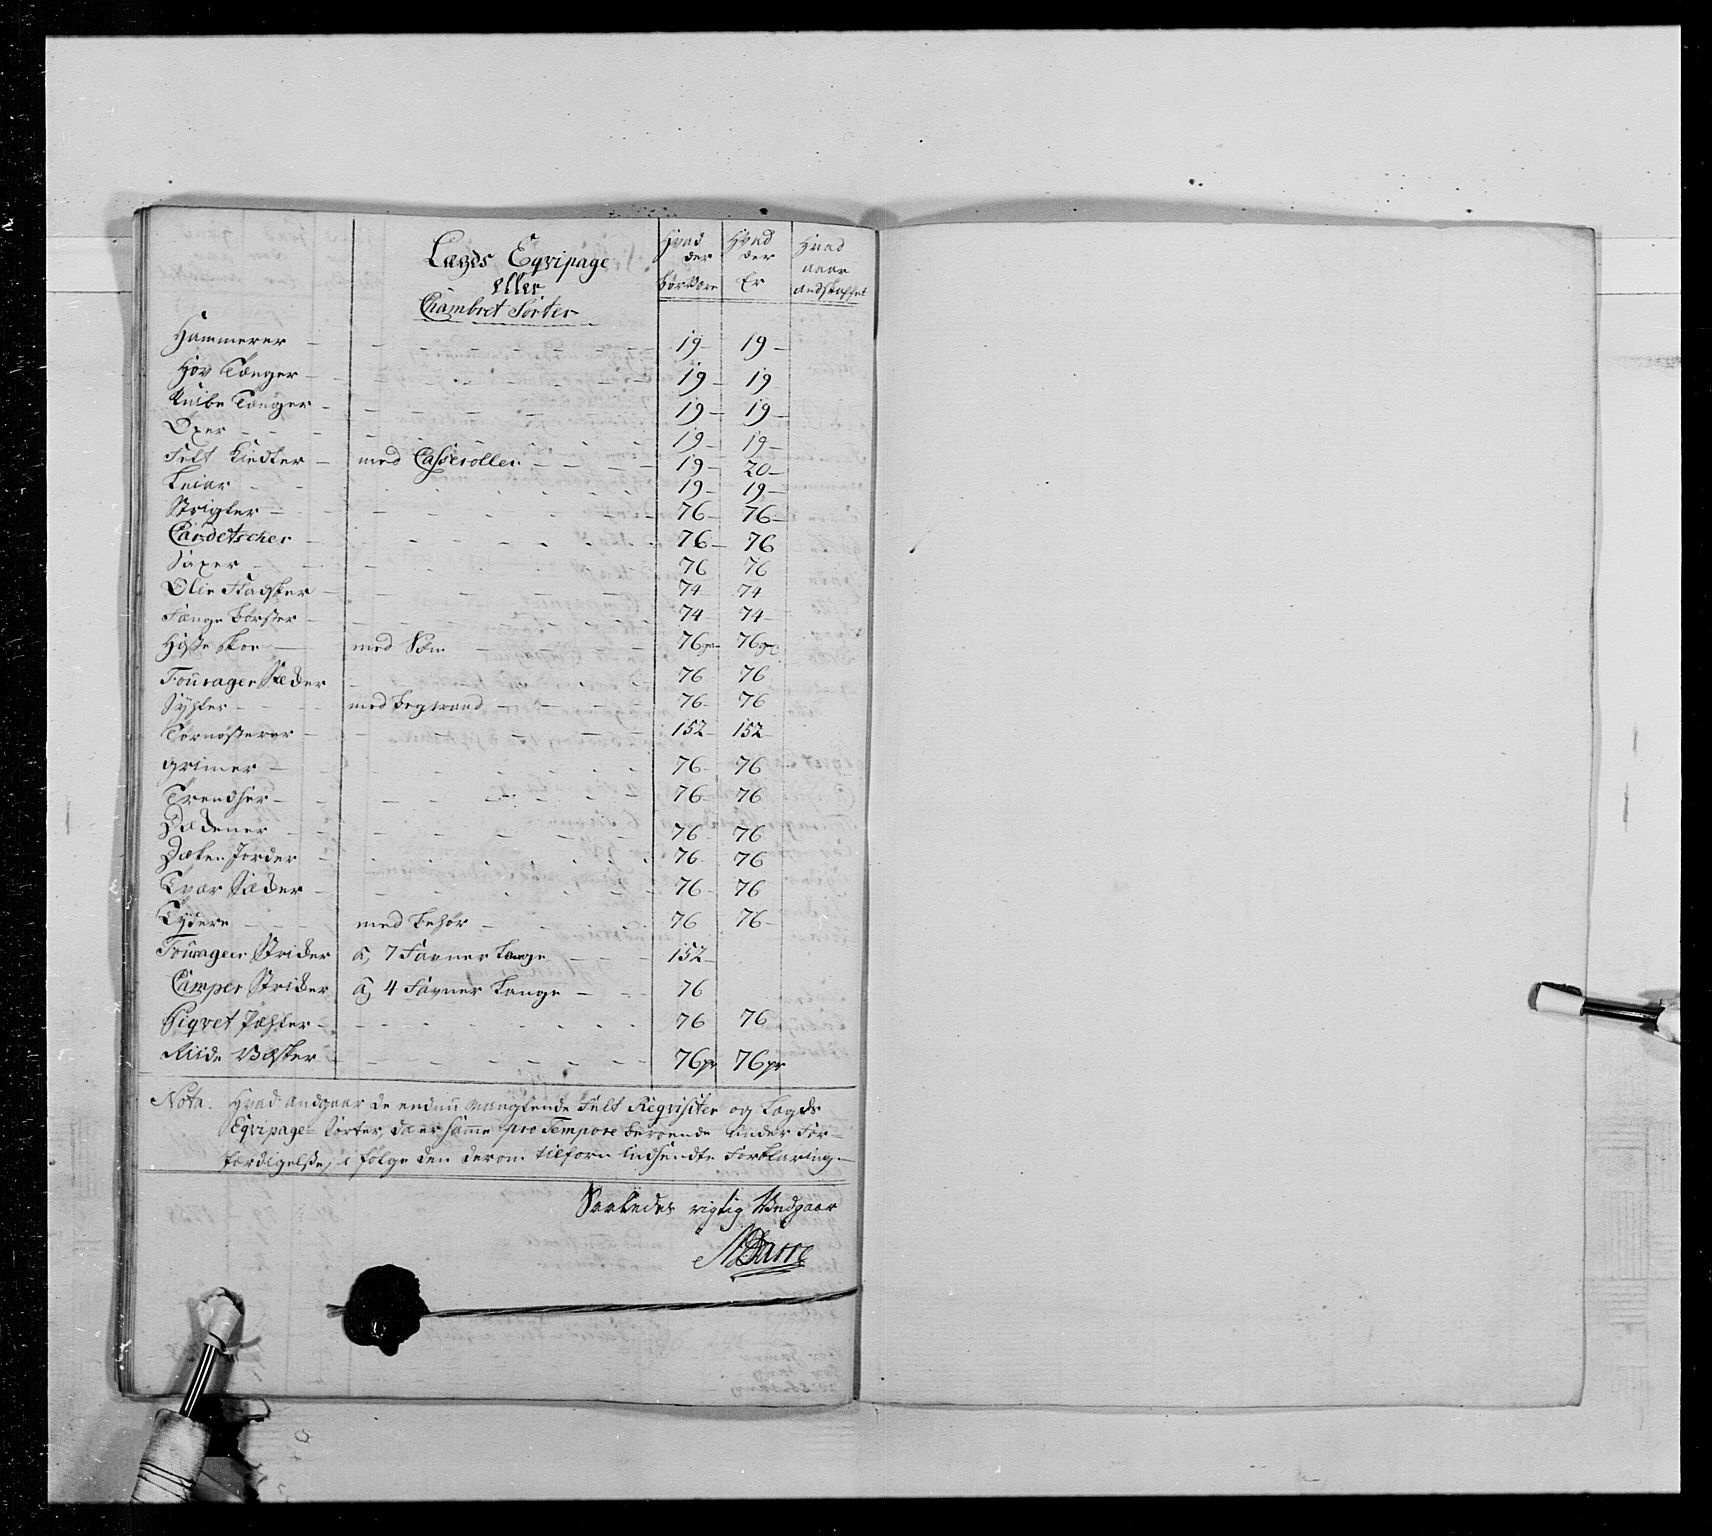 Lægds Eqvipage
eller
Chambret Sorter
Hvad der bør være
Hvad der Er
Hvad aar andskaffet
Hammerer — 19 — 19 —
Hov Tænger — 19 — 19
Knibe Tænger — 19 — 19 —
Øxer — 19 — 19 —
Felt Kiedler — med Casseroller — 19 — 20 —
Leiar — 19 — 19 —
Strigler — 76 — 76 —
Cardetscher — 76 — 76
Saxer — 76 76
Olie Flasker — 74 74
Fænge Børster — 74 — 74 —
Heste skoe — med Søm — 76 76
Fourager Sækker 76 76
Sykler — med 76 — 76
Tornøsterer — 152 — 152 —
Grimer — 76 — 76
Trendser — 76 — 76
Dækener — 76 — 76
Dæken Jorder — 76 — 76
Tvær Sækker — 76 — 76
Tydere — med Behør — 76 76 —
Fourageer Strikker à 7 Favner Lange — 152 —
Camper Strikker à 4 Favner Lange — 76
Piqvet Pæhler — 76 76
Riide Væsker — 76 pr 76 pr
Nota. Hvad andgaar de endnu manglende Felt Reqvisiter og Lægds
Eqvipage Sorter, da er samme pro Tempore beroende under For-
færdigelse, i følge den derom tilforn indsendte Forklaring —
Saaledes rigtig Undgaar